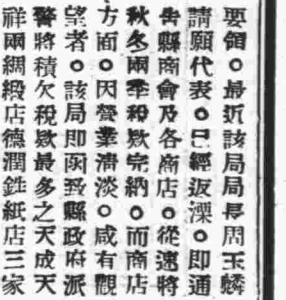 要領。最近該局局長周玉麟
請願代表。已經返溧。即通
告縣商會及各商店。從速將
秋冬兩季稅欵完納。而商店
方面。因營業淸淡。咸有觀
望者。該局即函致縣政府派
警將積欠稅欵最多之天成天
祥兩綢緞店德潤銼紙店三家